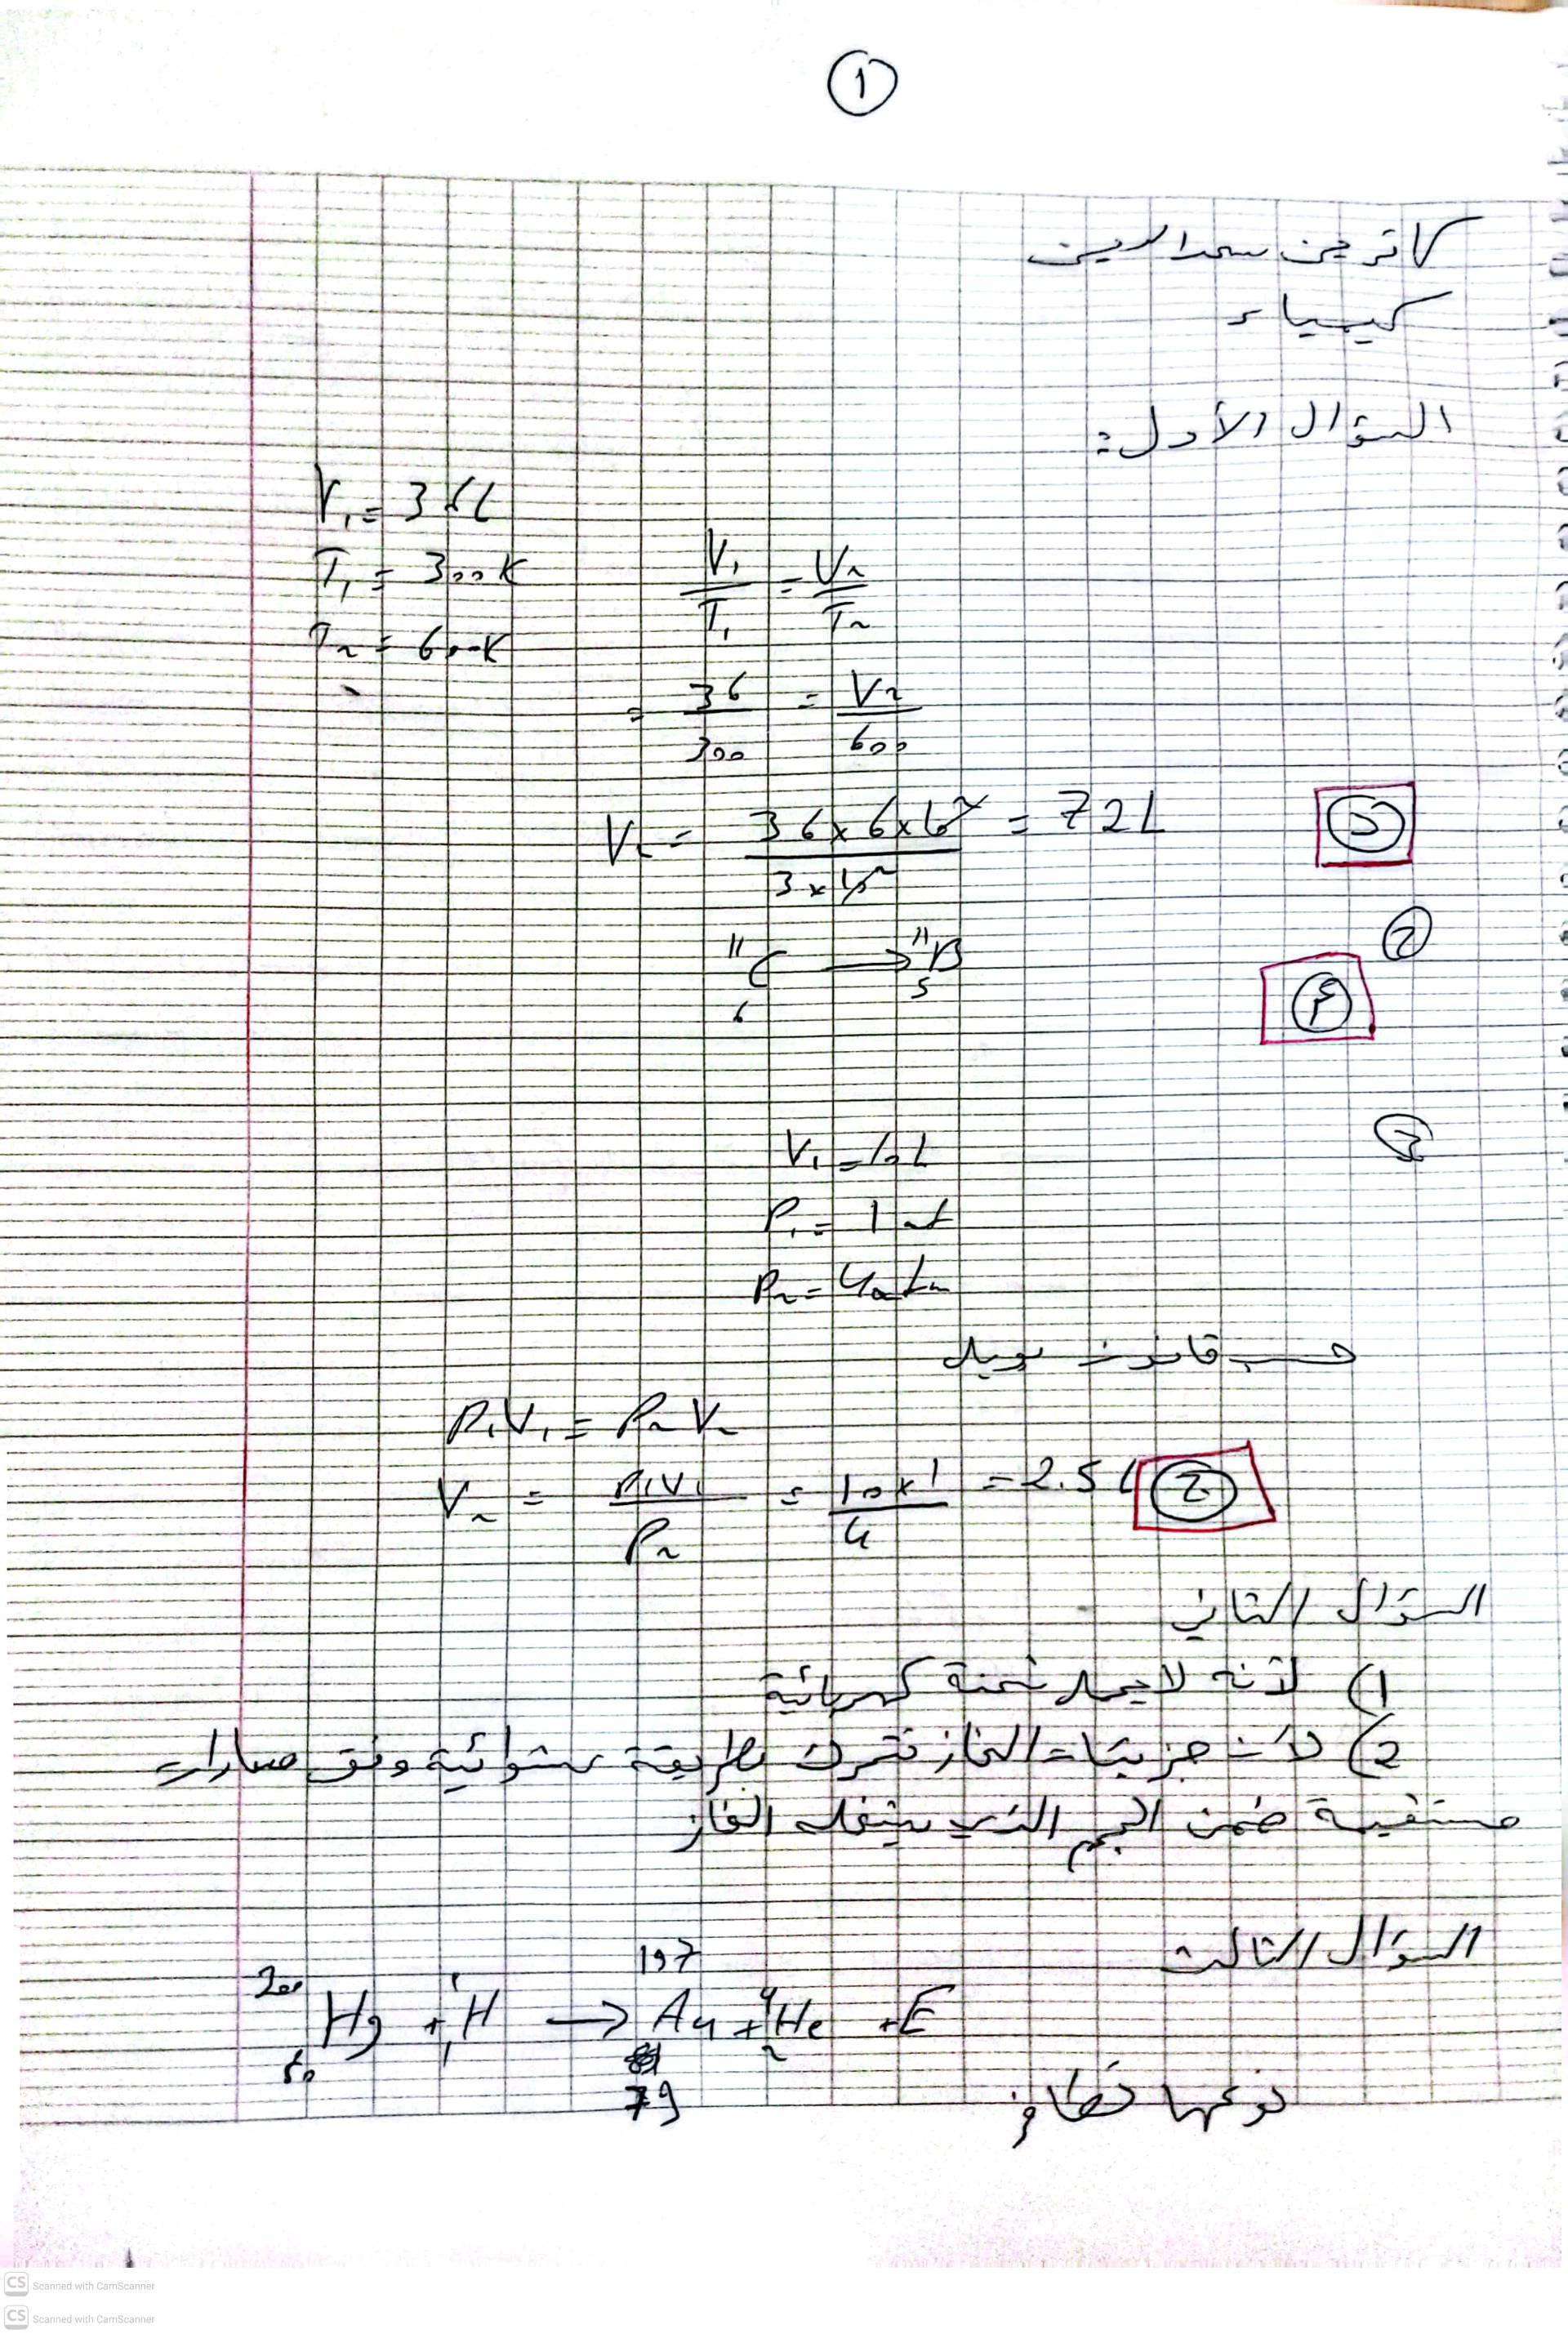 1
كاترين سعد الدين
كيمياء
السؤال الأول:
V₁ = 36L
T₁ = 300K
T₂ = 600K
V₁/T₁ = V₂/T₂
= 36/300 = V₂/600
V₂ = 36×6×10²/3×10² = 72L د
2
¹¹₆C → ¹¹₅B
3
V₁ = 10L
P₁ = 1 at
P₂ = 4 atm
حسب قانون بويل
P₁V₁ = P₂V₂
V₂ = P₁V₁/P₂ = 10×1/4 = 2.5L ج
السؤال الثاني
1) لأنه لا يحمل شحنة كهربائية
2) لأن جزيئات الغاز تتحرك بطريقة عشوائية وفق مسارات
مستقيمة ضمن الحجم الذي يشغله الغاز
السؤال الثالث
²⁰⁰₈₀Hg + ¹₁H → ¹⁹⁷₇₉Au + ⁴₂He + E
نوعها تطافر
Scanned with CamScanner
Scanned with CamScanner